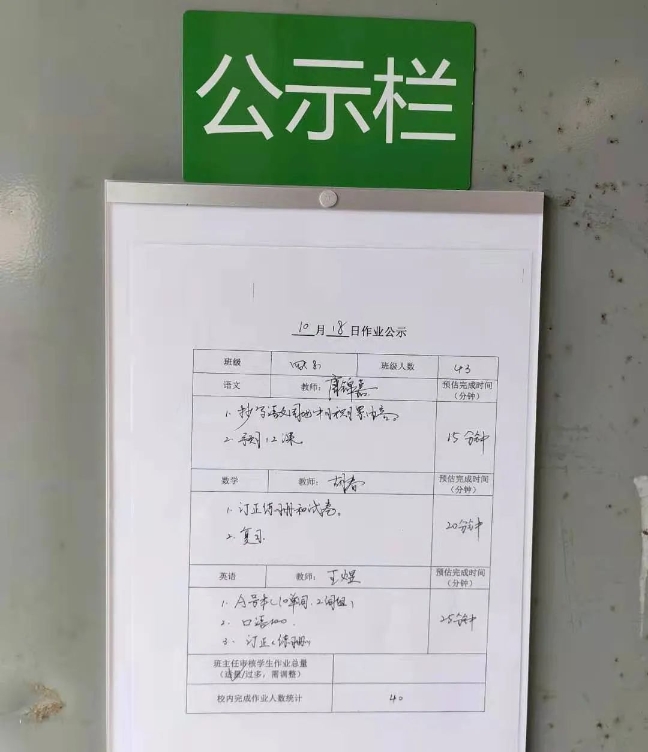 公示栏
10月18日作业公示
班级 班级人数 43
语文 教师: 预估完成时间(分钟)
2. 预习12课 15分钟
数学 教师: 胡春 预估完成时间(分钟)
1. 订正练习册和试卷。 20分钟
2. 复习
英语 教师: 王煜 预估完成时间(分钟)
1. A号本(10单词、2词组) 25分钟
2. 口语100.
3. 订正《练习册》
班主任审核学生作业总量
(适量/过多:需调整)
校内完成作业人数统计 40